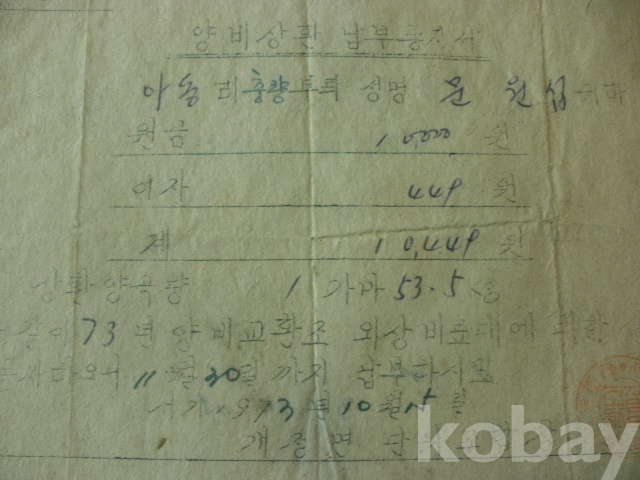 양비상환 납부통지서
아동리 충량부락 성명 문 원섭 귀하
원금 10,000 원
여자 449 원
계 10,449 원
상환양곡량 1 가마 53.5 kg
같이 73년 양비교환조 외상비료대에 대한
11월 30일까지 납부하시압
서기 1973년 10월 15일
개정면 단
kobay